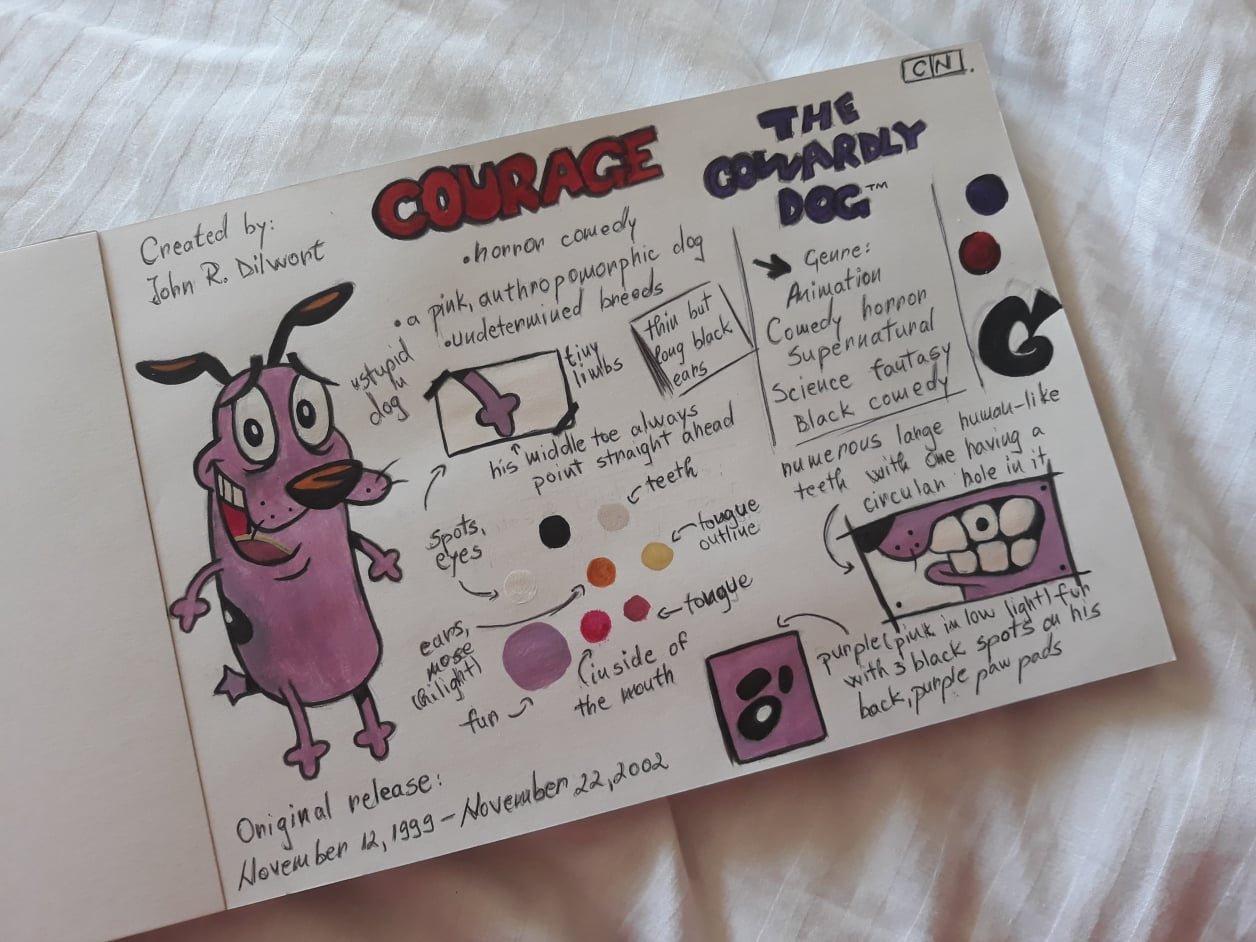 CN.
COURAGE
THE
COWARDLY
DOG™
Created by:
John R. Dilwort
•horror comedy
•a pink, anthropomorphic dog
•undetermined breeds
"stupid
dog"
tiny
limbs
thin but
long black
ears
his middle toe always
point straight ahead
Genre:
Animation
Comedy horror
Supernatural
Science fantasy
Black comedy
numerous large human-like
teeth with one having a
circular hole in it
teeth
tongue
outline
spots,
eyes
tongue
ears,
nose
(hilight)
fur
(inside of
the mouth
purple(pink in low light) fur
with 3 black spots on his
back, purple paw pads
Original release:
November 12, 1999 – November 22, 2002